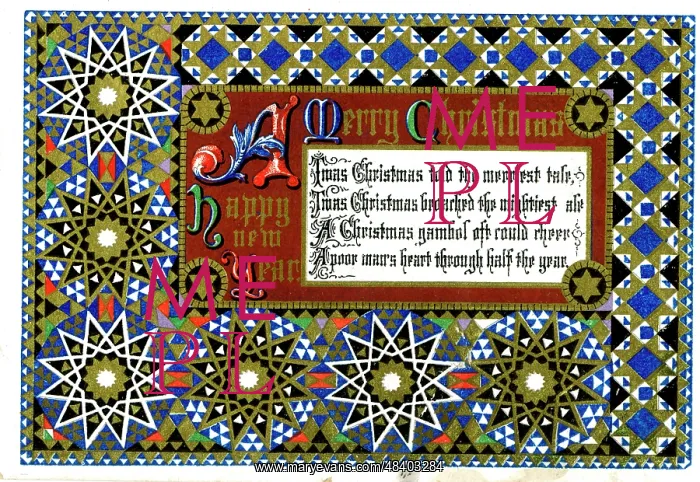 A Merry Christmas
happy
new
Year
Twas Christmas told the merriest tale,
Twas Christmas broached the mightiest ale
A Christmas gambol oft could cheer
A poor man's heart through half the year.
ME
PL
ME
PL
www.maryevans.com/48403284